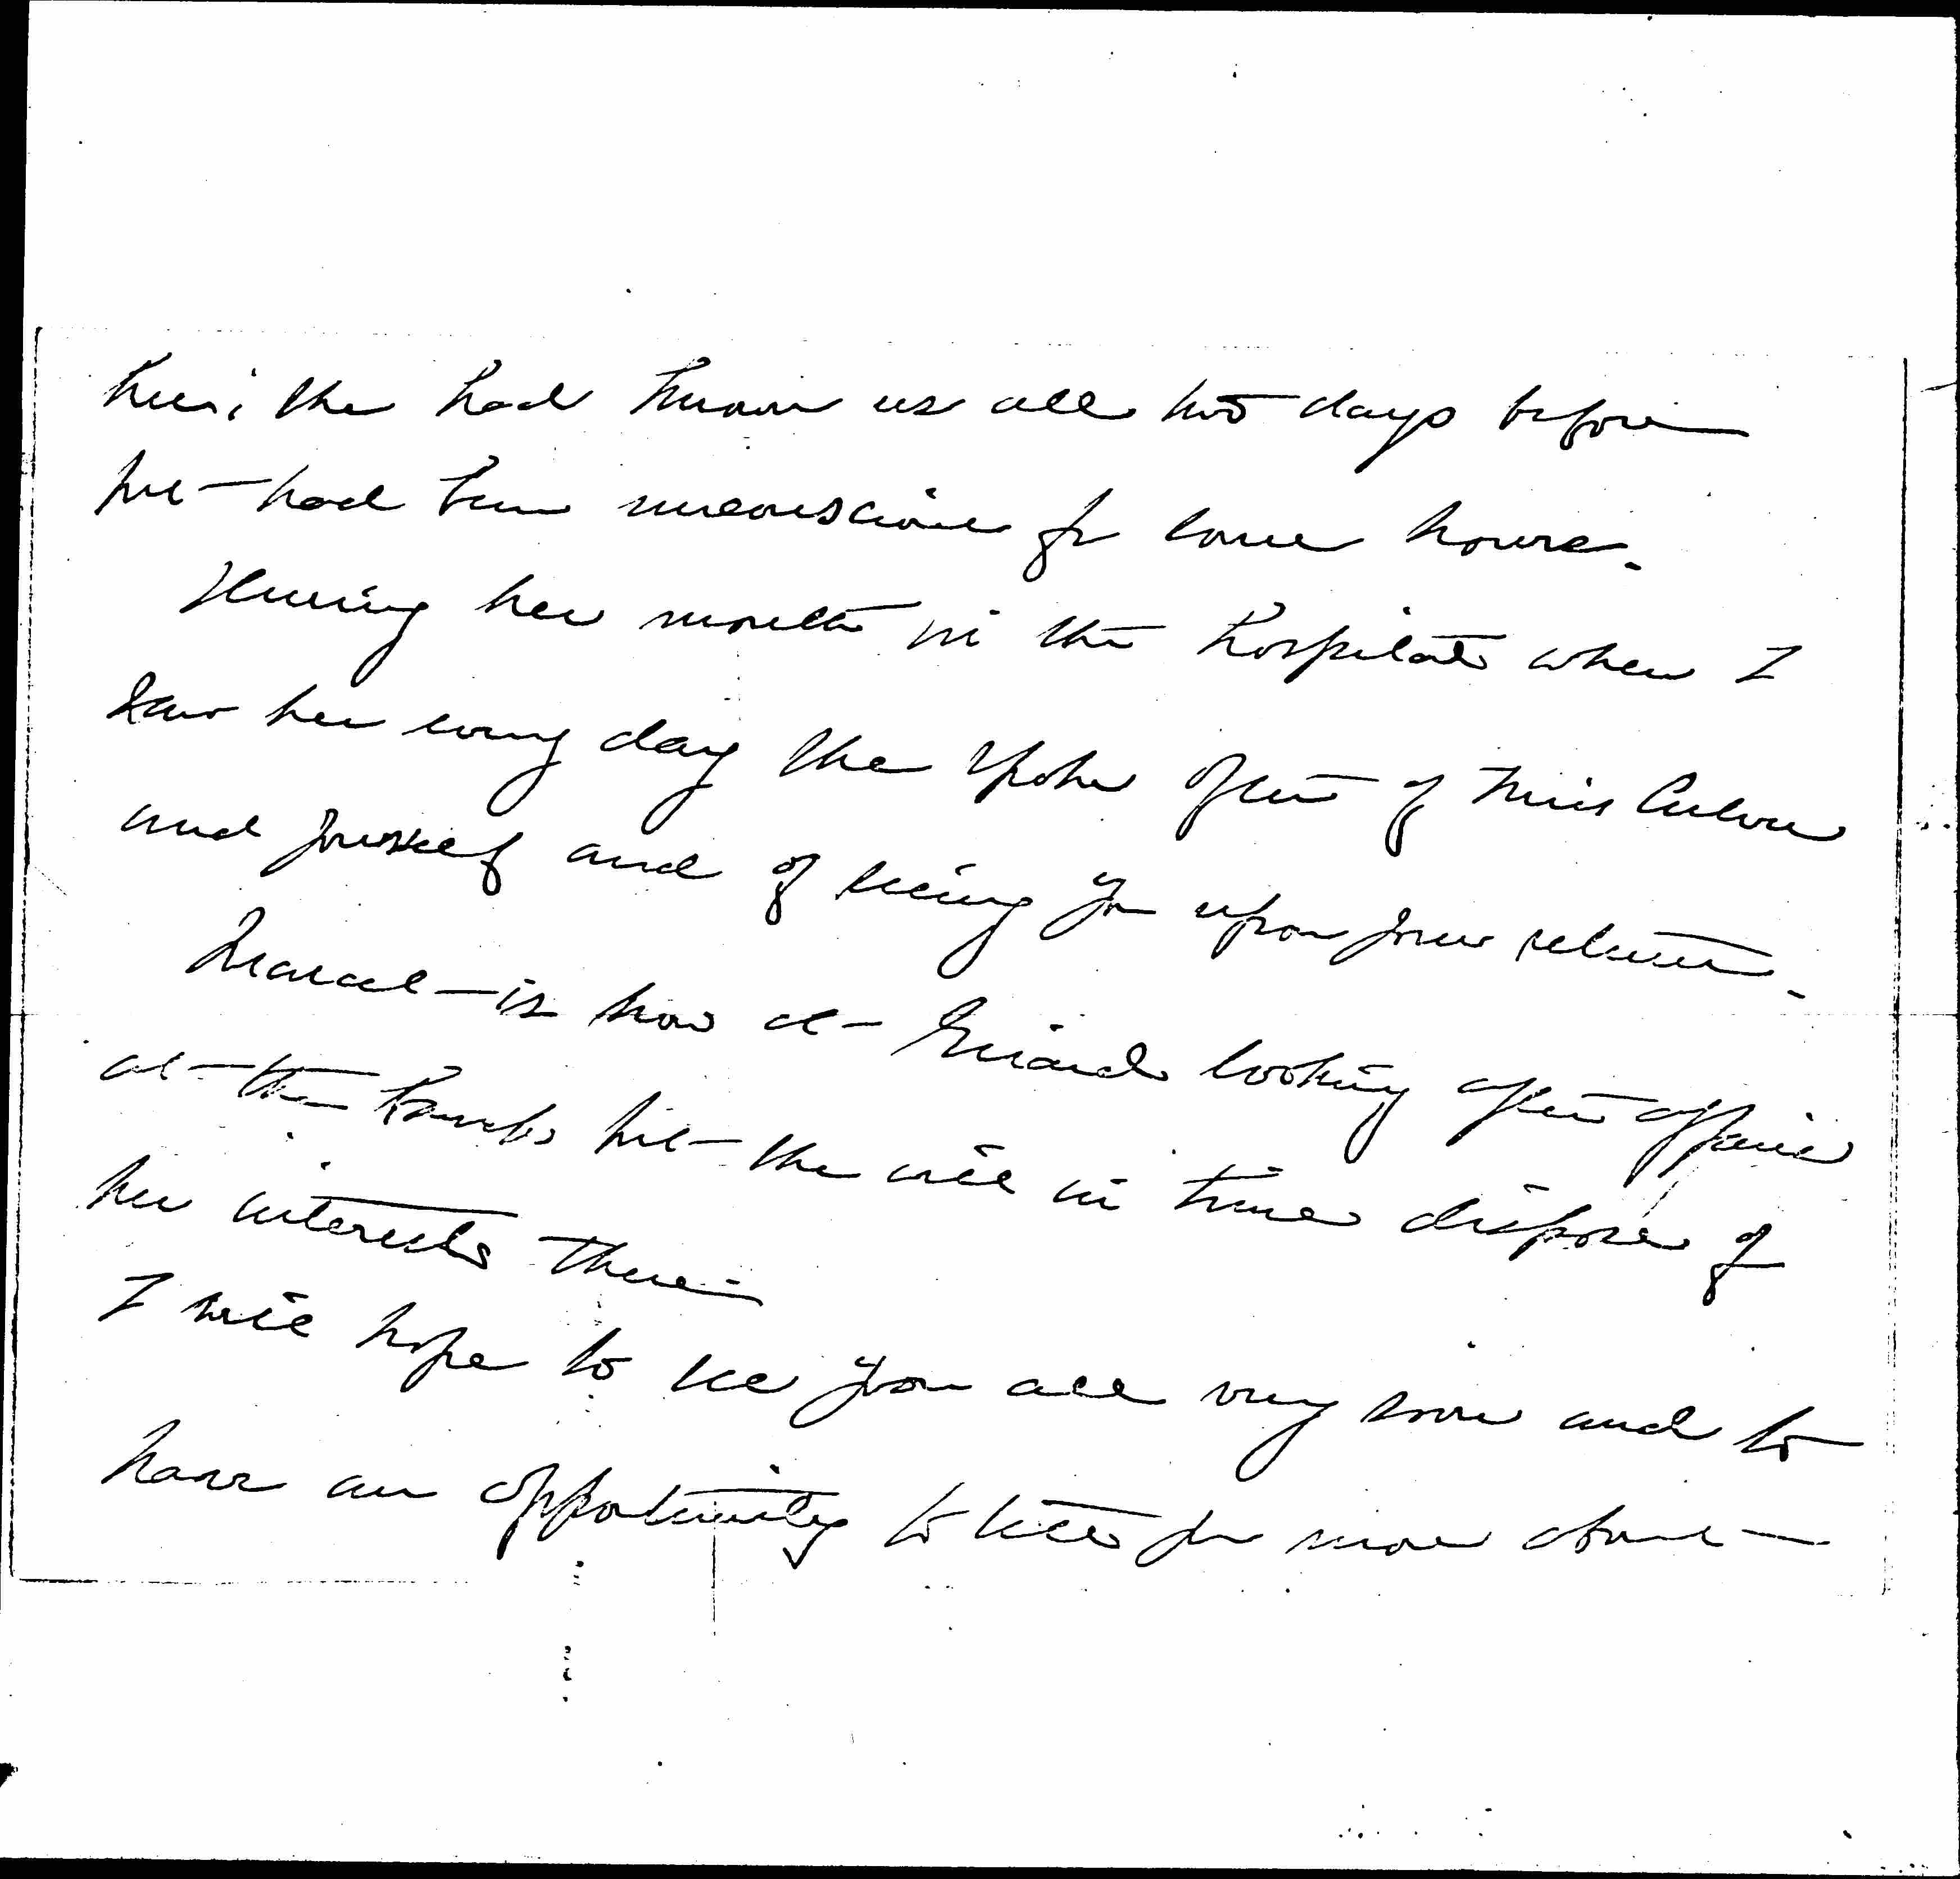 her; she had known us all two days before
but had been unconscious for some hours.
During her month in the hospital when I
saw her every day she spoke often of Miss Culver
and yourself and of seeing you upon your return.
is now at looking after affairs
at the Ranch but she will in time dispose of
her interests there.
I will hope to see you all very soon and to
have an opportunity to tell you more about